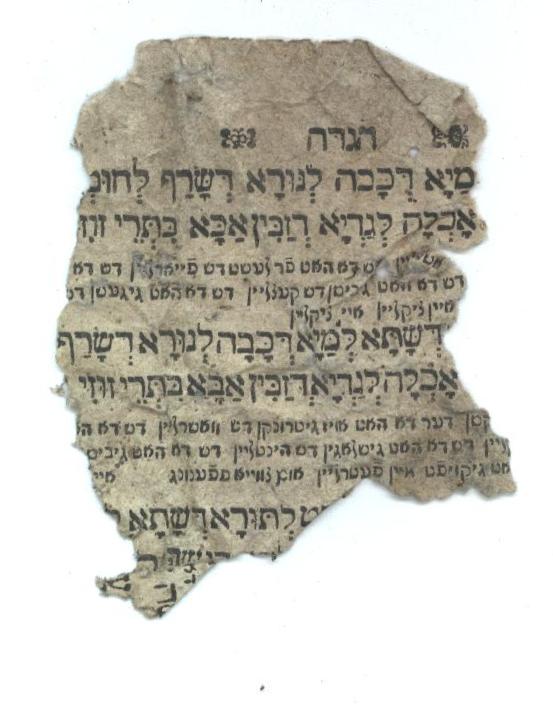 הגדה
מַיָא דְכָבָה לְנוּרָא דְשָׂרַף לְחוּט
אָכְלָה לְגַדְיָא דְזַבִּין אַבָּא בִּתְרֵי זוּזֵי
דש דא האט פֿר לעשט דש פֿייארליין דש דא
דש דא האט גביסן דש קעצליין דש דא האט גיגעסן
איין ציקליין איין ציקליין
דְשָׁתָא לְמַיָא דְכָבָה לְנוּרָא דְשָׂרַף
אָכְלָה לְגַדְיָא דְזַבִּין אַבָּא בִּתְרֵי זוּזֵי
דער דא האט אויז גיטרונקן דש וואשרליין דש דא
דש דא האט גישלאגין דש הינטליין דש דא האט גיביסן
גיקויפֿט איין פֿעטרליין אום צווייא פפֿענונג איי
לְתוּרָא דְשָׁתָא